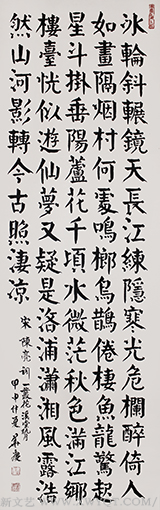 冰輪斜輾鏡天長江練隱寒光危欄醉倚人
如畫隔烟村何處鳴榔烏鵲倦棲魚龍驚起
星斗掛垂陽蘆花千頃水微茫秋色滿江鄉
樓臺恍似遊仙夢又疑是洛浦瀟湘風露浩
然山河影轉今古照淒凉
宋陳亮詞一叢花溪堂玩月
甲申仲夏
新文艺